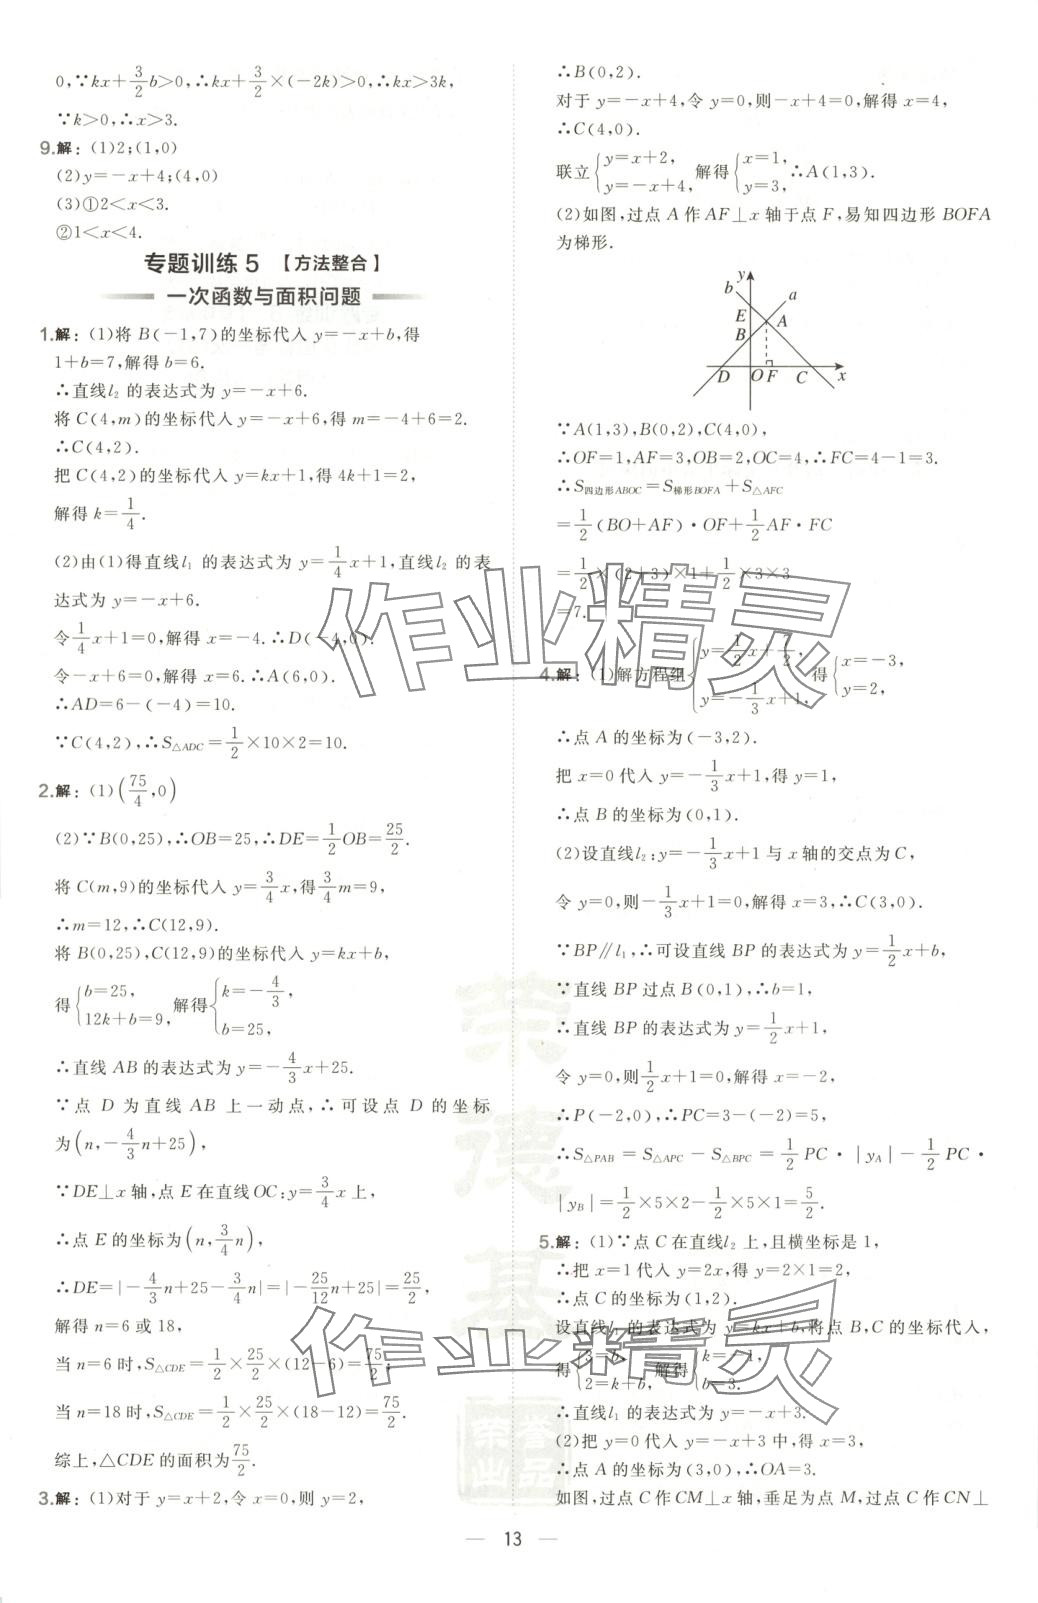 0,∵kx+3/2b>0,∴kx+3/2×(-2k)>0,∴kx>3k,
∵k>0,∴x>3.
9.解:(1)2;(1,0)
(2)y=-x+4;(4,0)
(3)①2<x<3.
②1<x<4.
专题训练5 【方法整合】
一次函数与面积问题
1.解:(1)将B(-1,7)的坐标代入y=-x+b,得
1+b=7,解得b=6.
∴直线l₂的表达式为y=-x+6.
将C(4,m)的坐标代入y=-x+6,得m=-4+6=2.
∴C(4,2).
把C(4,2)的坐标代入y=kx+1,得4k+1=2,
解得k=1/4.
(2)由(1)得直线l₁的表达式为y=1/4x+1,直线l₂的表
达式为y=-x+6.
令1/4x+1=0,解得x=-4.∴D(-4,0).
令-x+6=0,解得x=6.∴A(6,0).
∴AD=6-(-4)=10.
∵C(4,2),∴S△ADC=1/2×10×2=10.
2.解:(1)(75/4,0)
(2)∵B(0,25),∴OB=25,∴DE=1/2OB=25/2.
将C(m,9)的坐标代入y=3/4x,得3/4m=9,
∴m=12,∴C(12,9).
将B(0,25),C(12,9)的坐标代入y=kx+b,
得{b=25, 12k+b=9, 解得{k=-4/3, b=25,
∴直线AB的表达式为y=-4/3x+25.
∵点D为直线AB上一动点,∴可设点D的坐标
为(n,-4/3n+25),
∵DE⊥x轴,点E在直线OC:y=3/4x上,
∴点E的坐标为(n,3/4n),
∴DE=|-4/3n+25-3/4n|=|-25/12n+25|=25/2,
解得n=6或18,
当n=6时,S△CDE=1/2×25/2×(12-6)=75/2,
当n=18时,S△CDE=1/2×25/2×(18-12)=75/2.
综上,△CDE的面积为75/2.
3.解:(1)对于y=x+2,令x=0,则y=2,
∴B(0,2).
对于y=-x+4,令y=0,则-x+4=0,解得x=4,
∴C(4,0).
联立{y=x+2, y=-x+4, 解得{x=1, y=3, ∴A(1,3).
(2)如图,过点A作AF⊥x轴于点F,易知四边形BOFA
为梯形.
y
b
a
E
A
B
D
O
F
C
x
∵A(1,3),B(0,2),C(4,0),
∴OF=1,AF=3,OB=2,OC=4,∴FC=4-1=3.
∴S四边形ABOC=S梯形BOFA+S△AFC
=1/2(BO+AF)·OF+1/2AF·FC
=1/2×(2+3)×1+1/2×3×3
=7.
4.解:(1)解方程组{y=1/2x+7/2, y=-1/3x+1, 得{x=-3, y=2,
∴点A的坐标为(-3,2).
把x=0代入y=-1/3x+1,得y=1,
∴点B的坐标为(0,1).
(2)设直线l₂:y=-1/3x+1与x轴的交点为C,
令y=0,则-1/3x+1=0,解得x=3,∴C(3,0).
∵BP∥l₁,∴可设直线BP的表达式为y=1/2x+b,
∵直线BP过点B(0,1),∴b=1,
∴直线BP的表达式为y=1/2x+1,
令y=0,则1/2x+1=0,解得x=-2,
∴P(-2,0),∴PC=3-(-2)=5,
∴S△PAB=S△APC-S△BPC=1/2PC·|yA|-1/2PC·
|yB|=1/2×5×2-1/2×5×1=5/2.
5.解:(1)∵点C在直线l₂上,且横坐标是1,
∴把x=1代入y=2x,得y=2×1=2,
∴点C的坐标为(1,2).
设直线l₁的表达式为y=kx+b,将点B,C的坐标代入,
得{3=b, 2=k+b, 解得{k=-1, b=3.
∴直线l₁的表达式为y=-x+3.
(2)把y=0代入y=-x+3中,得x=3,
∴点A的坐标为(3,0),∴OA=3.
如图,过点C作CM⊥x轴,垂足为点M,过点C作CN⊥
13
作业精灵
作业精灵
荣德基
荣誉出品